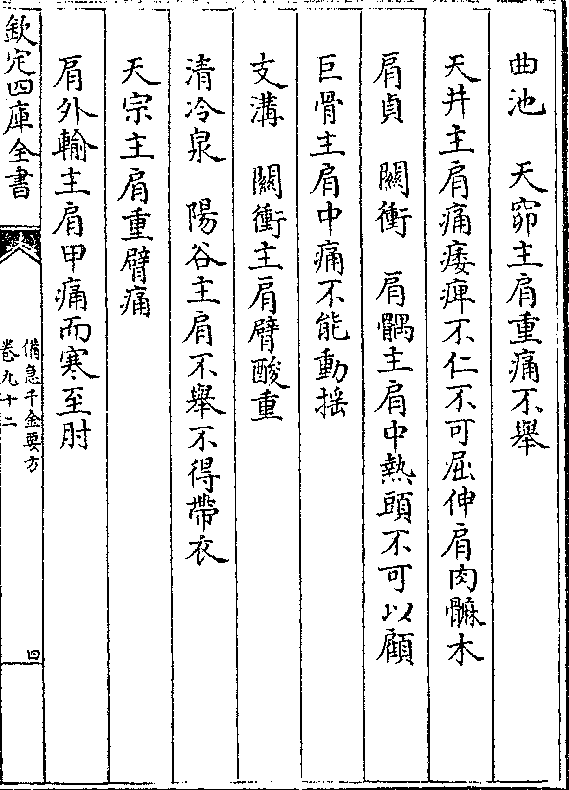 曲池　天窌主肩重痛不舉
天井主肩痛痿痺不仁不可屈伸肩肉髍木
肩貞　關衝　肩髃主肩中熱頭不可以顧
巨骨主肩中痛不能動揺
支溝　關衝主肩臂酸重
清冷泉　陽谷主肩不舉不得帶衣
天宗主肩重臂痛
肩外輸主肩甲痛而寒至肘
欽定四庫全書
備急千金要方
卷九十二
四